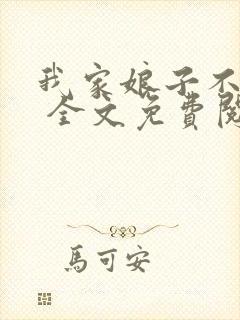 我家娘子不
全文免費閱
馬可安